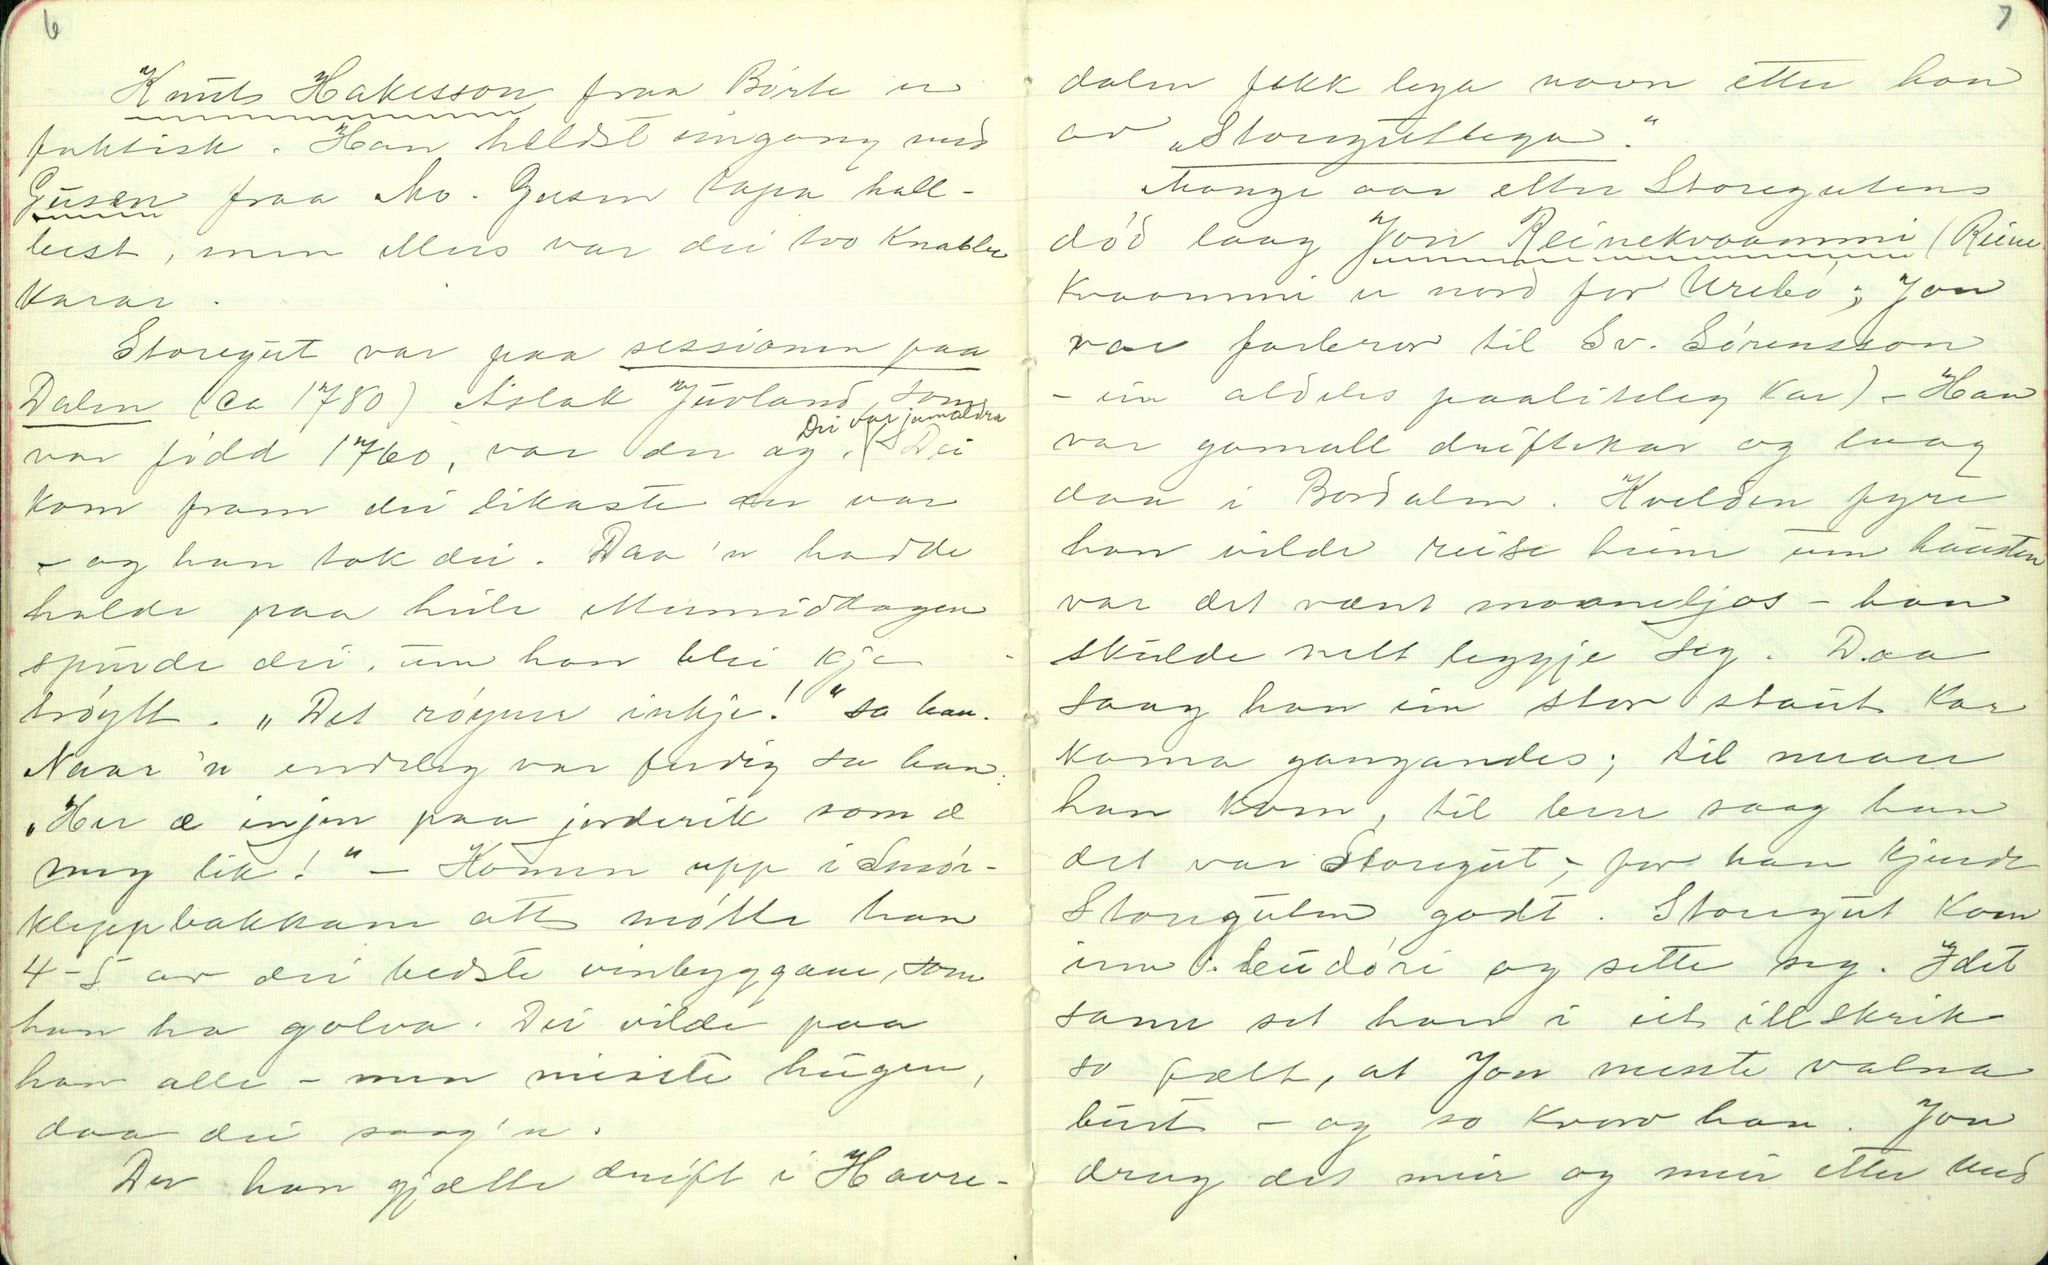 6
Knut Hakesson fraa Børte er
faktisk. Han heldst eingong med
Gusen fraa Mo. Gusen tapa hall-
best, men ellers var dei two knable
karar.
Storegut var paa sessionen paa
Dalen (ca 1780) Aslak Juvland, som
Dei var jamaldra
var fødd 1760, var der og. Dei
kom fram dei likaste der var
- og han tok dei. Daa 'n hadde
halde paa heile ettermiddagen
spurde dei, um han blei kje
trøytt. "Det røyner inkje!" sa han.
Naar 'n endeleg var ferdig sa han:
"Her æ injen paa jorderik som æ
meg lik!" - Komen upp i Smør-
kleppbakkane att møtte han
4-5 av dei bedste vinbyggane, som
han ha golva. Dei vilde paa
han alle - men miste hugen,
daa dei saag 'n.
Der han gjætte drift i Havre-
7
dalen fekk lega navn etter han
av "Storegutlega".
Mange aar etter Storegutens
død laag Jon Reinekvaammi (Reine
kvaammi er nord for Urebø; Jon
var farbror til Sv. Sørensson
- ein aldeles paaliteleg kar) - Han
var gamall driftekar og laag
daa i Bordalen. Kvelden fyre
han vilde reise heim um hausten
var det vænt maaneljos - han
skulde nett leggje seg. Daa
saag han ein stor staut kar
koma gangandes; til nærare
han kom, til betre saag han
det var Storegut, for han kjende
Storeguten godt. Storegut kom
inn i budøri og sette seg. I det
same set han i eit illskrik
so fælt, at Jon meste valna
burt - og so kvarv han. Jon
drog det meir og meir etter med